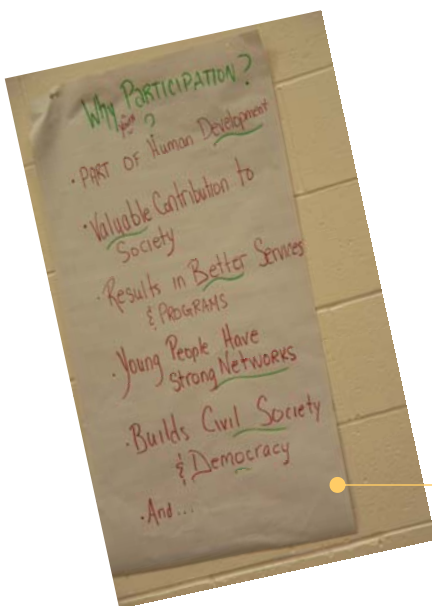 Why PARTICIPATION?
?
• PART OF Human Development
• Valuable Contribution to
Society
• Results in Better Services
& PROGRAMS
• Young People Have
Strong NETWORKS
• Builds Civil Society
& Democracy
• And...